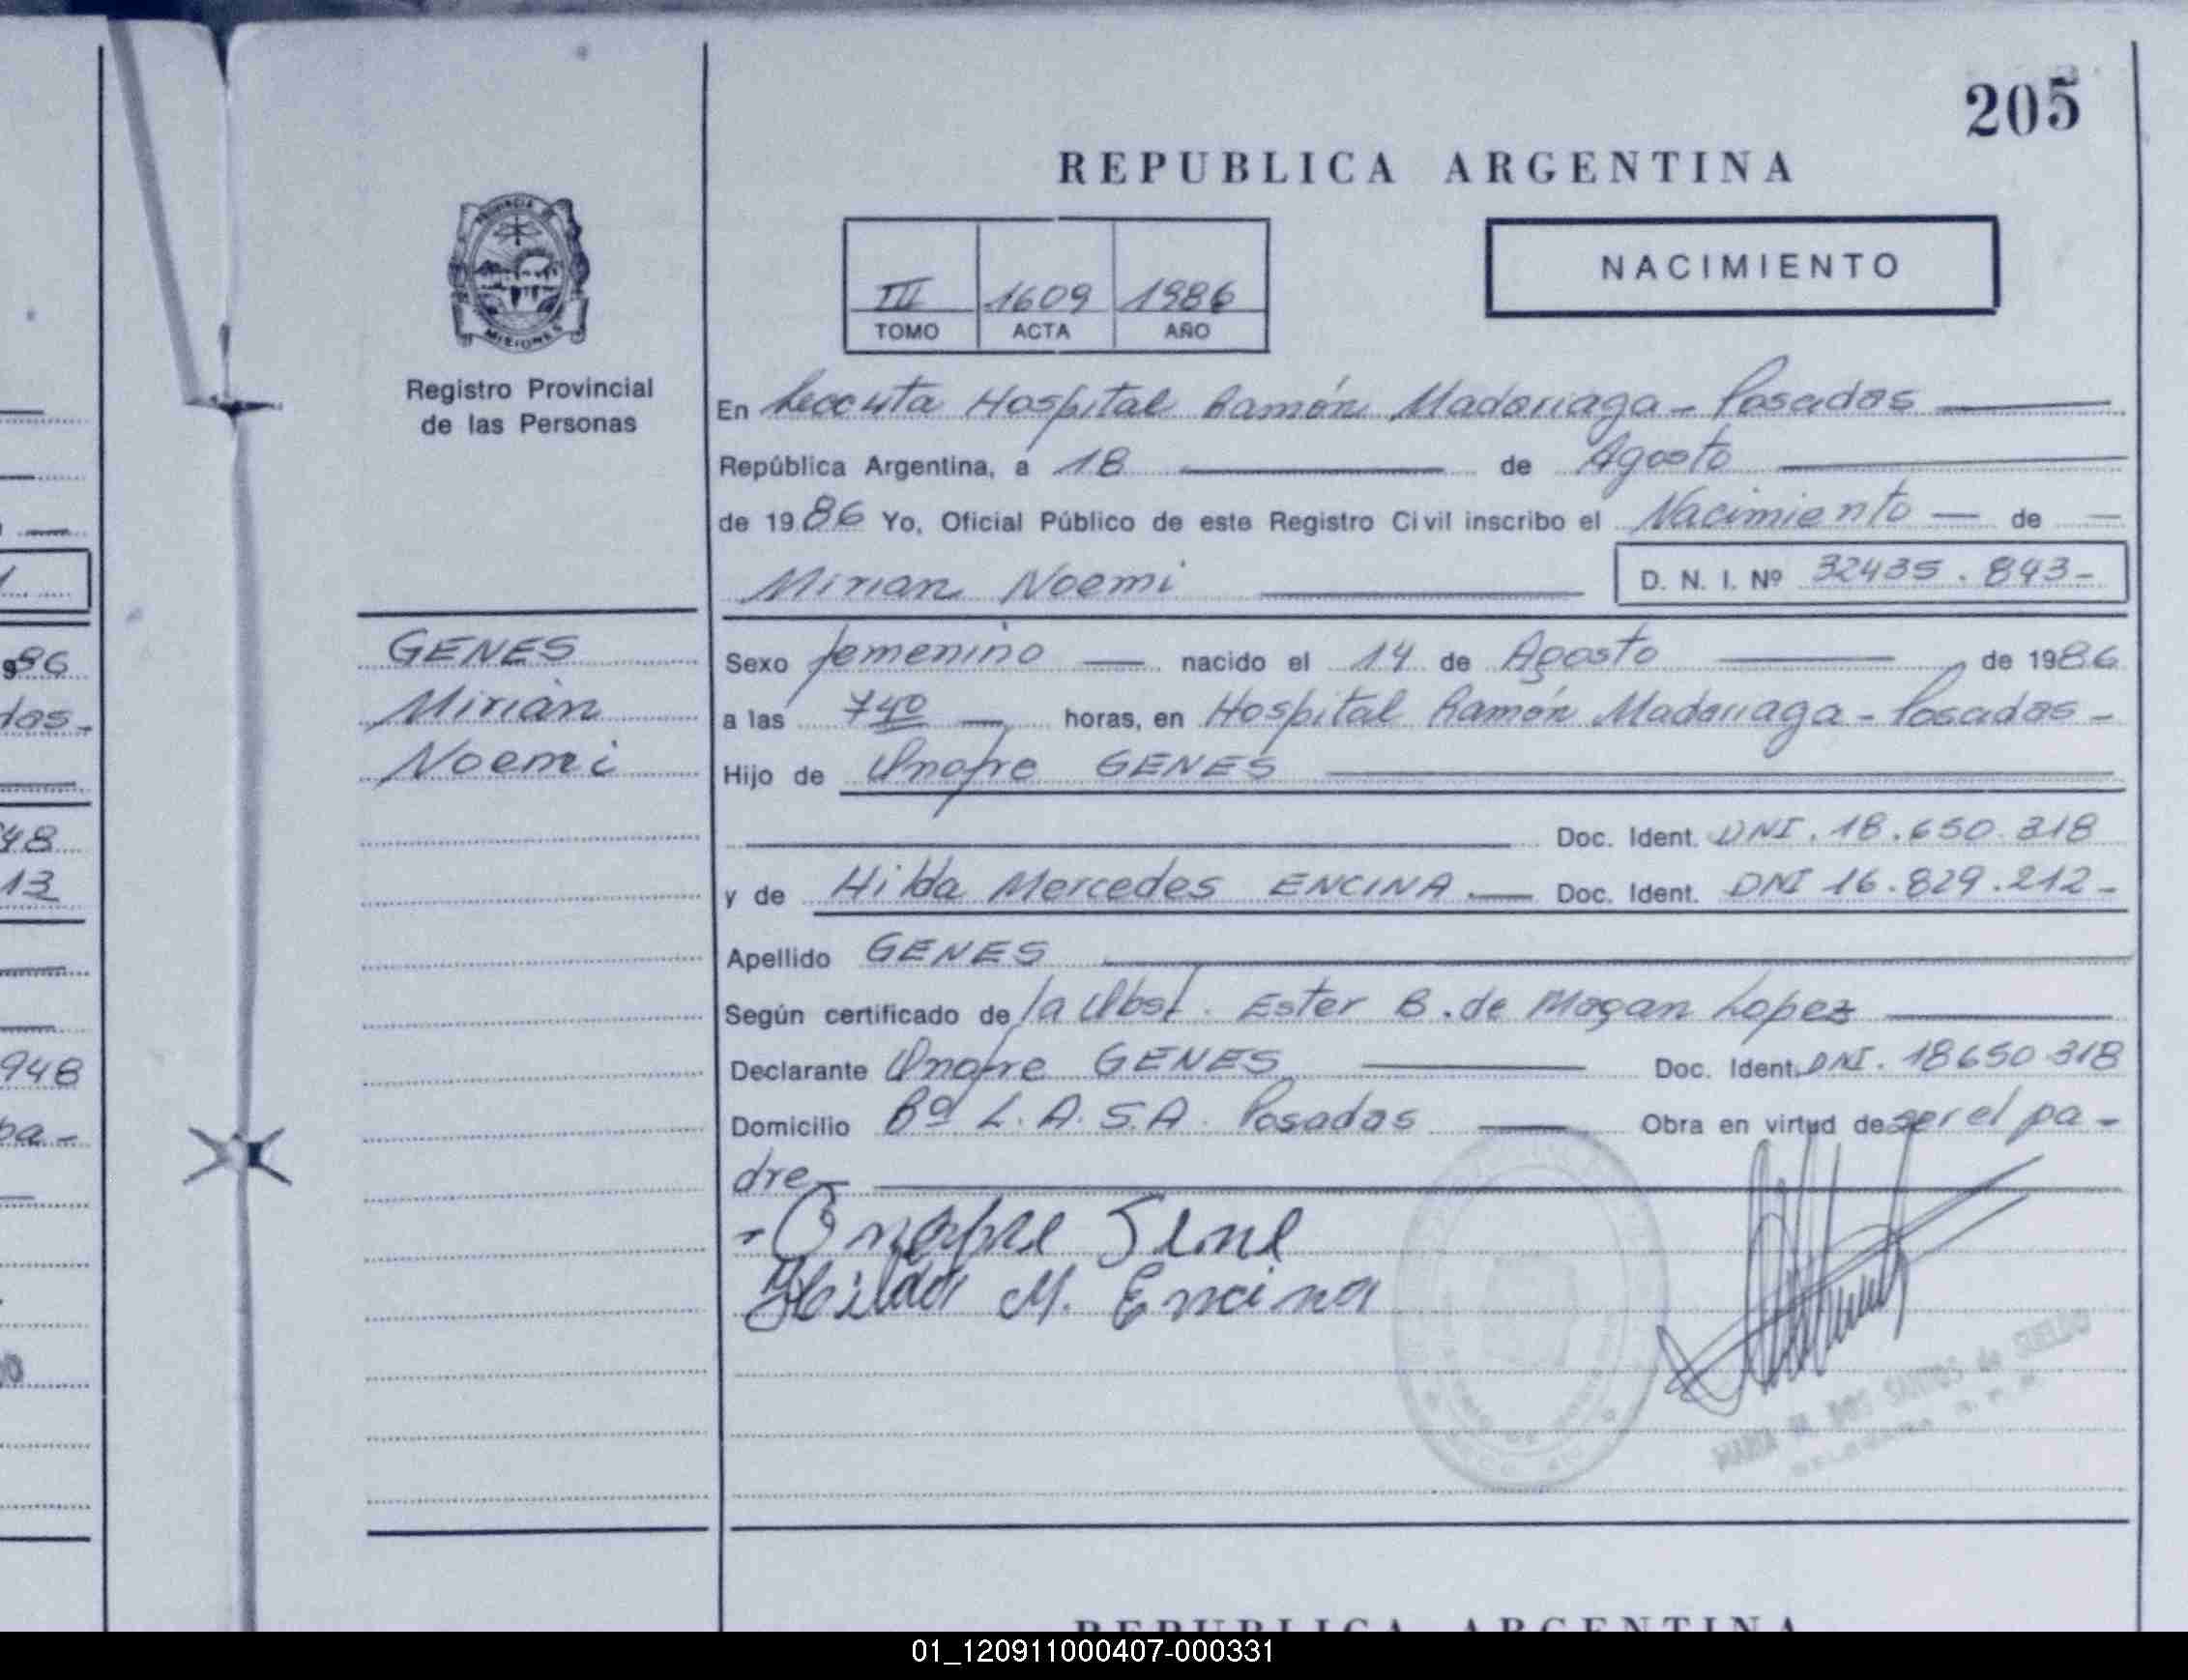 205
REPUBLICA ARGENTINA
PROVINCIA DE
MISIONES
Registro Provincial
de las Personas
III 1609 1986
TOMO ACTA AÑO
NACIMIENTO
En Seccuta Hospital Ramón Madariaga - Posadas
República Argentina, a 18 de Agosto
de 1986 Yo, Oficial Público de este Registro Civil inscribo el Nacimiento — de —
Mirian Noemi D. N. I. Nº 32435.843-
GENES
Mirian
Noemi
Sexo femenino — nacido el 14 de Agosto de 1986
a las 740 — horas, en Hospital Ramón Madariaga - Posadas -
Hijo de Onofre GENES
Doc. Ident. DNI. 18.650.318
y de Hilda Mercedes ENCINA — Doc. Ident. DNI 16.829.212-
Apellido GENES
Según certificado de la Obst. Ester B. de Mogan Lopez
Declarante Onofre GENES Doc. Ident. DNI. 18650318
Domicilio Bº L.A.S.A. Posadas — Obra en virtud de ser el pa-
dre
- Onofre Jene
Hilda M. Encina
986
das-
48
13
948
pa-
REPUBLICA ARGENTINA
01_120911000407-000331